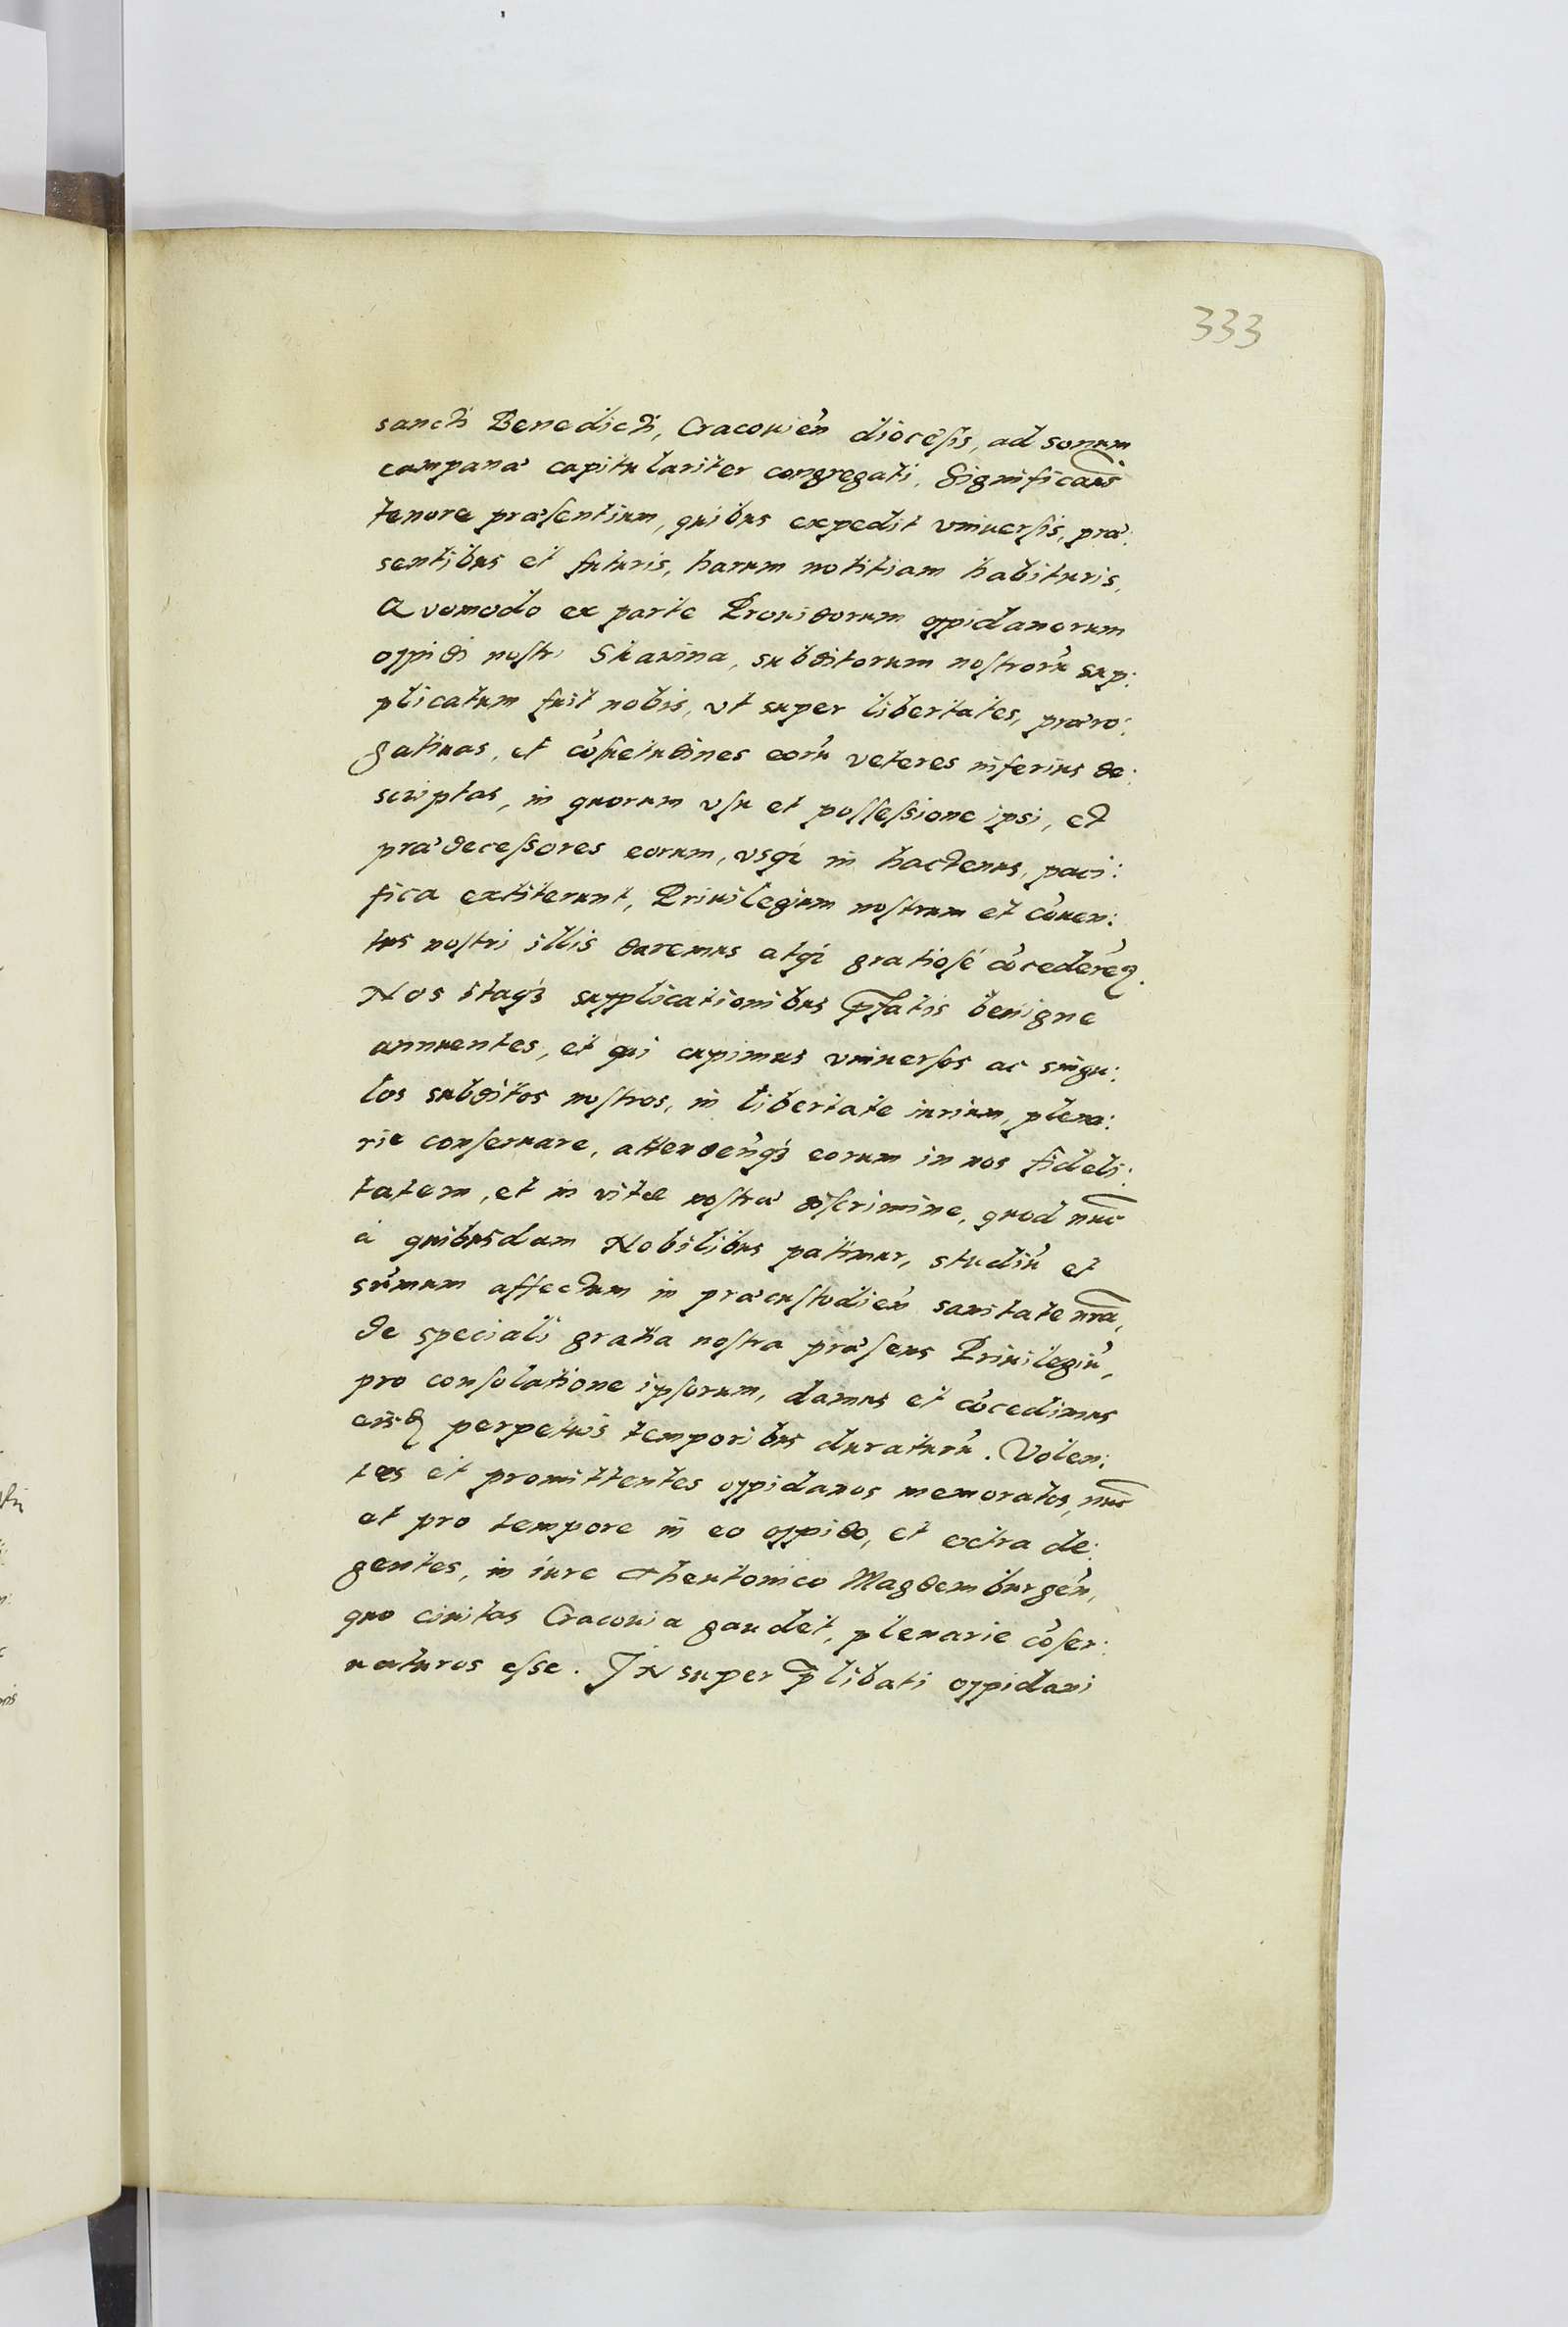 333
sancti Benedicti, Cracouień diocesis, ad sonum
campanæ capitulariter congregati. Significam̃
tenore præsentium, quibus expedit vniuersis, præ:
sentibus et futuris, harum notitiam habituris.
Quomodo ex parte Prouidorum oppidanorum
oppidi nostri Skawina, subditorum nostrorũ sup:
plicatum fuit nobis, vt super libertates, præro:
gatiuas, et cõsuetudines eorũ veteres inferius de:
scriptas, in quorum vsu et possessione ipsi, et
prædecessores eorum, vsq́ in hactenus, paci:
fica extiterunt, Priuilegium nostrum et cõuen:
tus nostri illis daremus atq́ gratiosè cõcederem⁹.
Nos itaq́ supplicationibus p̃fatis benigne
annuentes, et qui cupimus vniuersos ac singu:
los subditos nostros, in libertate iurium, plena:
rie conseruare, attendeñq́ eorum in nos fideli:
tatem, et in vitæ nostræ discrimine, quod nũc
à quibusdam Nobilibus patimur, studiũ et
sũmum affectum in præcustodień sanitate nr̃a,
de speciali gratia nostra præsens Priuilegiũ,
pro consolatione ipsorum, damus et cõcedimus
eisd perpetuis temporibus duraturũ. Volen:
tes et promittentes oppidanos memoratos, nũc
et pro tempore in eo oppido, et extra de:
gentes, in iure Theutonico Magdemburgeń,
quo ciuitas Cracouia gaudet, plenarie cõser:
uaturos esse. INsuper p̃libati oppidani